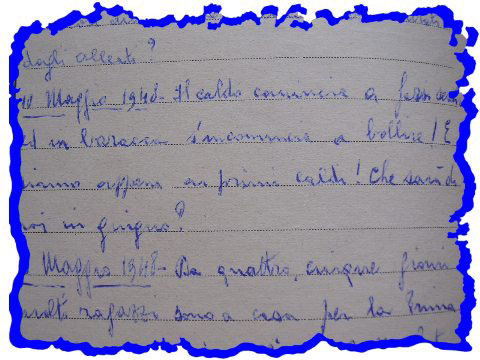 dagli alleati?
Maggio 1948. Il caldo comincia a farsi
ed in baracca s'incomincia a bollire! E
siamo appena ai primi caldi! Che sarà di
noi in giugno?
Maggio 1948. Da quattro, cinque giorni
molti ragazzi sono a casa per la